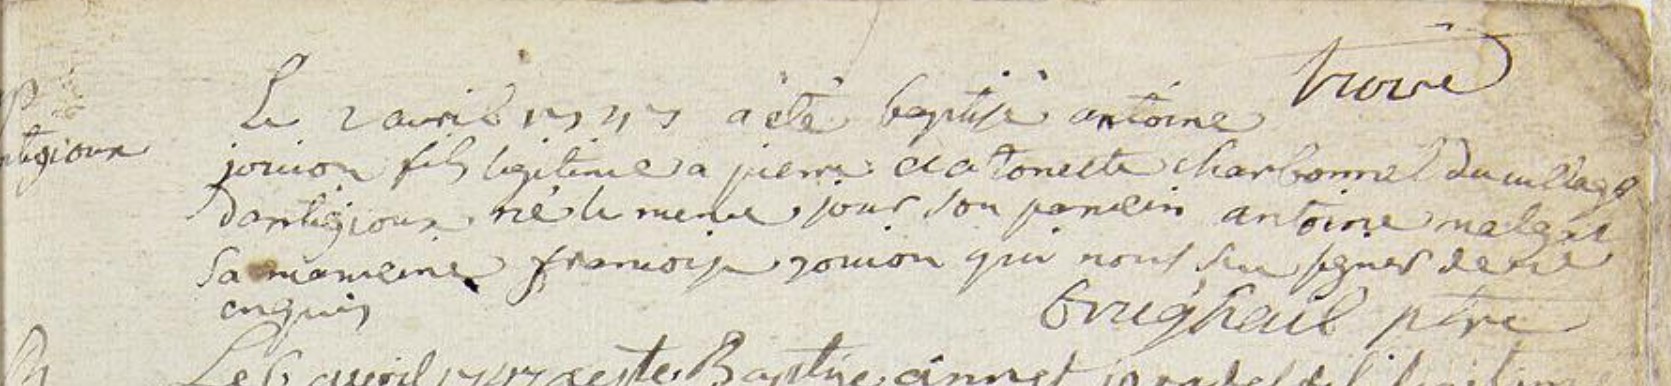 trové
Le 2 avril 1747 a été baptisé antoine
antigioux
jouion fils legitime a pierre et a toneste charbonnel du village
dantigioux né le meme jour son parrein antoine
sa marreine francoise jouion qui nont seu signer de ce
enquis
brughail ptre
Le 6 avril 1747 a este Baptise annet